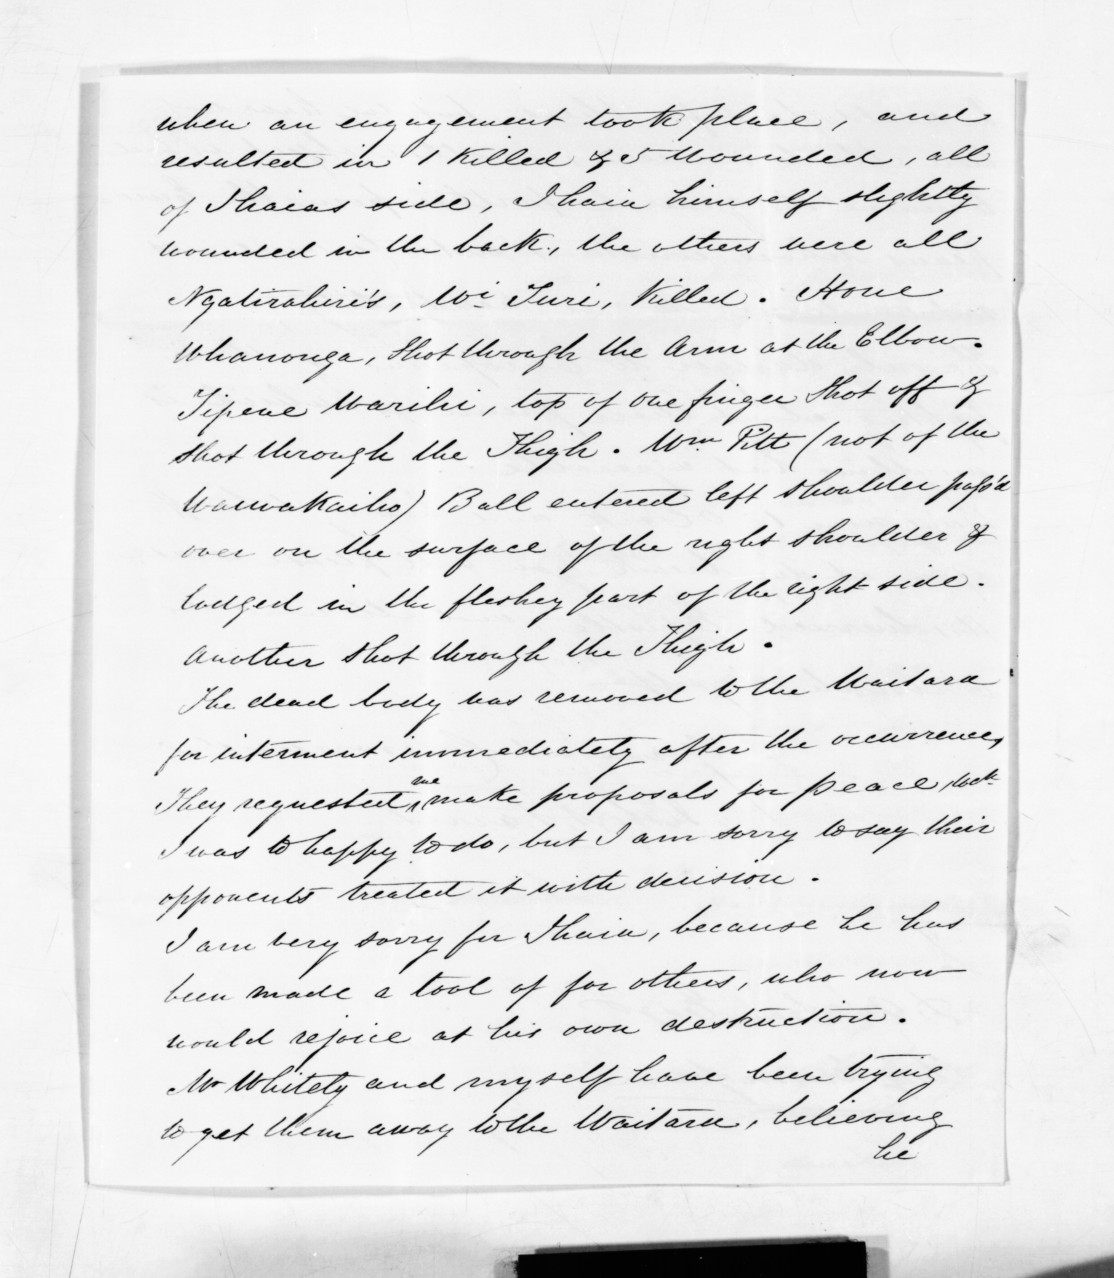 when an engagement took place, and
resulted in 1 Killed & 5 Wounded, all
of Ihaias side, Ihaia himself slightly
wounded in the back, the others were all
Ngatirahiri's, Wi Turi, Killed. Hone
Whanonga, Shot through the Arm at the Elbow.
Tipene Warihi, top of one finger Shot off &
Shot through the Thigh. Wm Pitt (not of the
Waiwakaiho) Ball entered left shoulder pass'd
over on the surface of the right shoulder &
lodged in the fleshey part of the right side.
Another shot through the Thigh.
The dead body was removed to the Waitara
for interment immediately after the occurrence,
They requested me make proposals for peace, wch
I was to happy to do, but I am sorry to say their
opponents treated it with derision.
I am very sorry for Ihaia, because he has
been made a tool of for others, who now
would rejoice at his own destruction.
Mr Whitely and myself have been trying
to get them away to the Waitara, believing
he